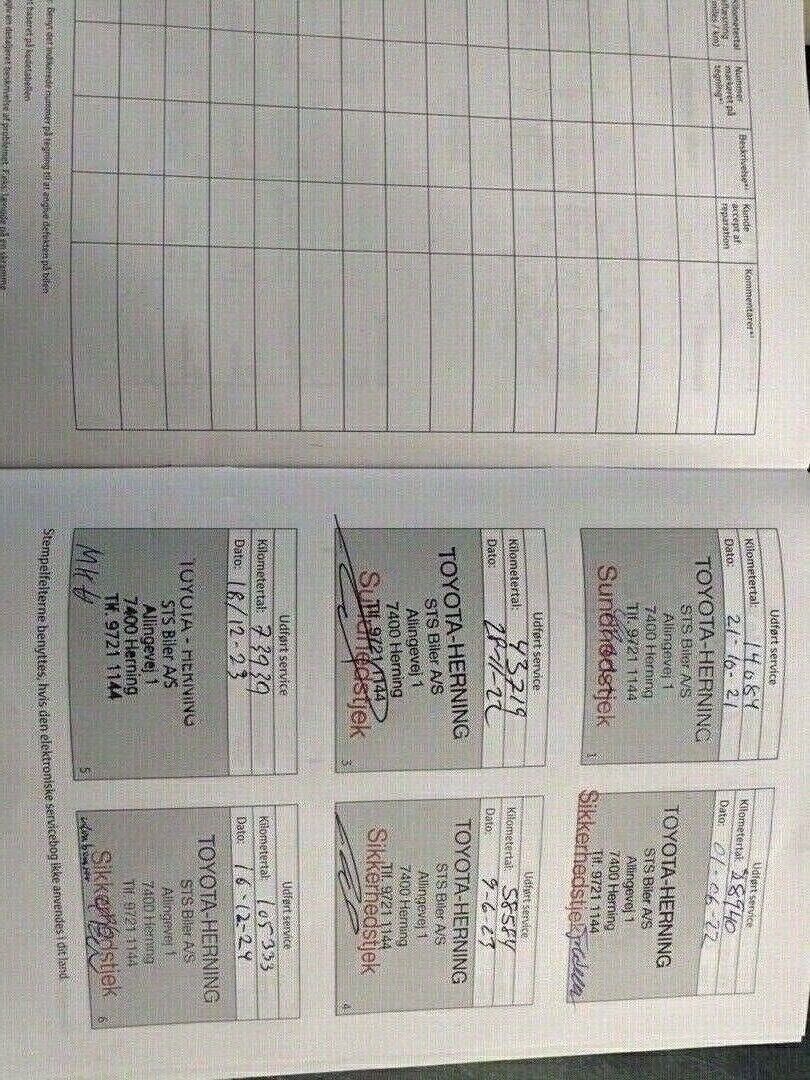 Kilometertal
Nummer
markeret på
tegning*¹
Beskrivelse*²
Kunde
accept af
reparation
Kommentarer*³
Benyt det indikerede nummer på tegning til at angive defekten på bilen
baseret på kodetabellen
en detaljeret beskrivelse af problemet.
Udført service
Kilometertal: 14084
Dato: 21-10-21
TOYOTA-HERNING
STS Biler A/S
Allingevej 1
7400 Herning
Tlf. 9721 1144
Sundhedstjek
1
Udført service
Kilometertal: 28940
Dato: 01-06-22
TOYOTA-HERNING
STS Biler A/S
Allingevej 1
7400 Herning
Tlf. 9721 1144
Sikkerhedstjek
Udført service
Kilometertal: 43719
Dato: 28-11-22
TOYOTA-HERNING
STS Biler A/S
Allingevej 1
7400 Herning
Tlf. 9721 1144
Sundhedstjek
3
Udført service
Kilometertal: 58584
Dato: 9-6-23
TOYOTA-HERNING
STS Biler A/S
Allingevej 1
7400 Herning
Tlf. 9721 1144
Sikkerhedstjek
4
Udført service
Kilometertal: 73939
Dato: 18/12-23
TOYOTA-HERNING
STS Biler A/S
Allingevej 1
7400 Herning
Tlf. 9721 1144
5
Udført service
Kilometertal: 105333
Dato: 16-12-24
TOYOTA-HERNING
STS Biler A/S
Allingevej 1
7400 Herning
Tlf. 9721 1144
Sikkerhedstjek
6
Stempelfelterne benyttes, hvis den elektroniske servicebog ikke anvendes i dit land.